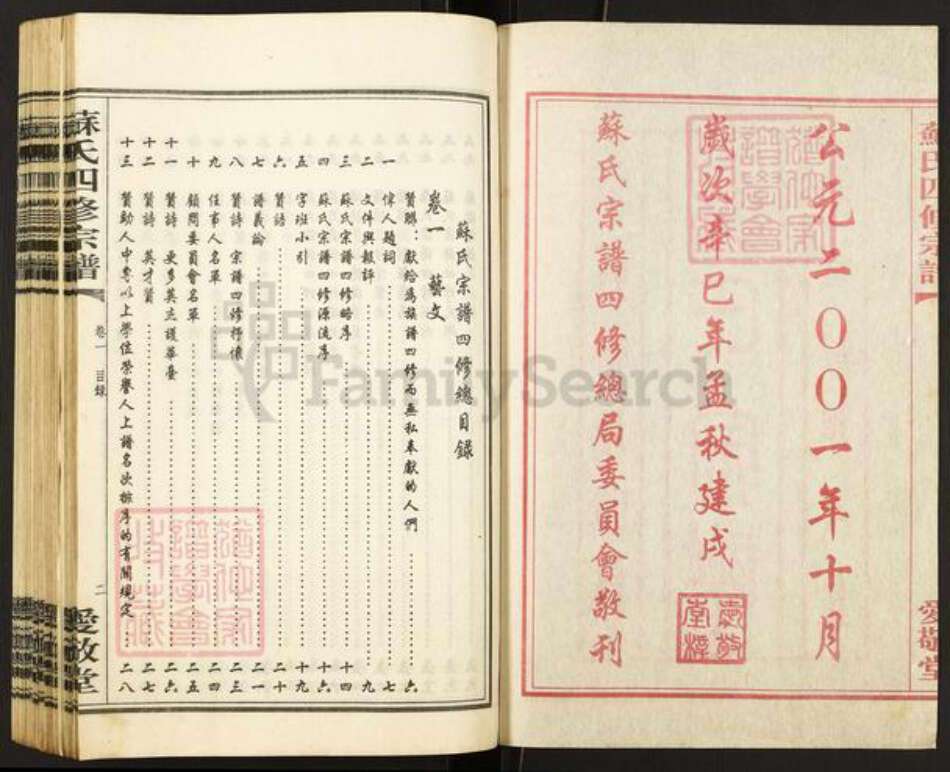 蘇氏四修宗譜
愛敬堂
公元二〇〇一年十月
歲次辛巳年孟秋建戌
蘇氏宗譜四修總局委員會敬刊
蘇氏宗譜四修總目錄
卷一 藝文
賀聯：獻給為族譜四修而無私奉獻的人們……六
一 偉人題詞……七
二 文件與報評……九
三 蘇氏宗譜四修略序……十四
四 蘇氏宗譜四修源流序……十六
五 字班小引……十九
六 贊語……二十
七 譜義論……二一
八 贊詩 宗譜四修抒懷……二三
九 任事人名單……二四
十 顧問委員會名單……二五
十一 贊詩 更多英杰護華臺……二六
十二 贊詩 英才贊……二七
十三 贊助人中專以上學位榮譽人上譜名次排序的有關規定……二八
蘇氏四修宗譜
卷一 目錄
二
愛敬堂
FamilySearch